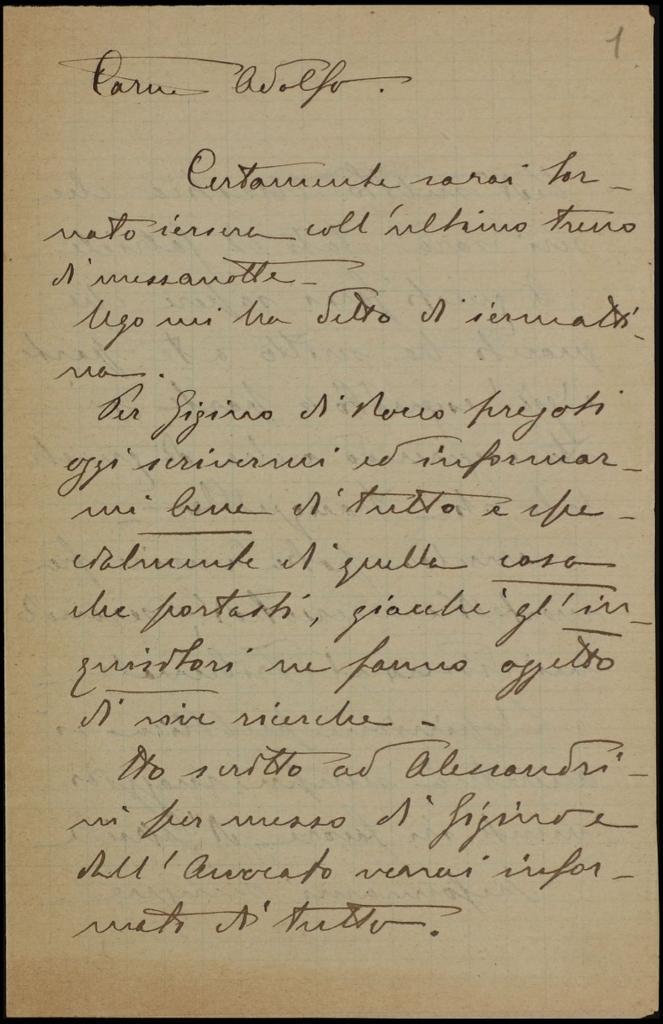 1
Caro Adolfo.
Certamente sarai tor-
nato iersera coll'ultimo treno
di mezzanotte-
Ugo mi ha detto di iermatti-
na.
Per Gigino di Rocco pregoti
oggi scrivermi ed informar-
mi bene di tutto e spe-
cialmente di quella cosa
che portasti, giacchè gl'in-
quisitori ne fanno oggetto
di vive ricerche -
Ho scritto ad Alessandri-
ni per mezzo di Gigino e
dell'Avvocato verrai infor-
mato di tutto.